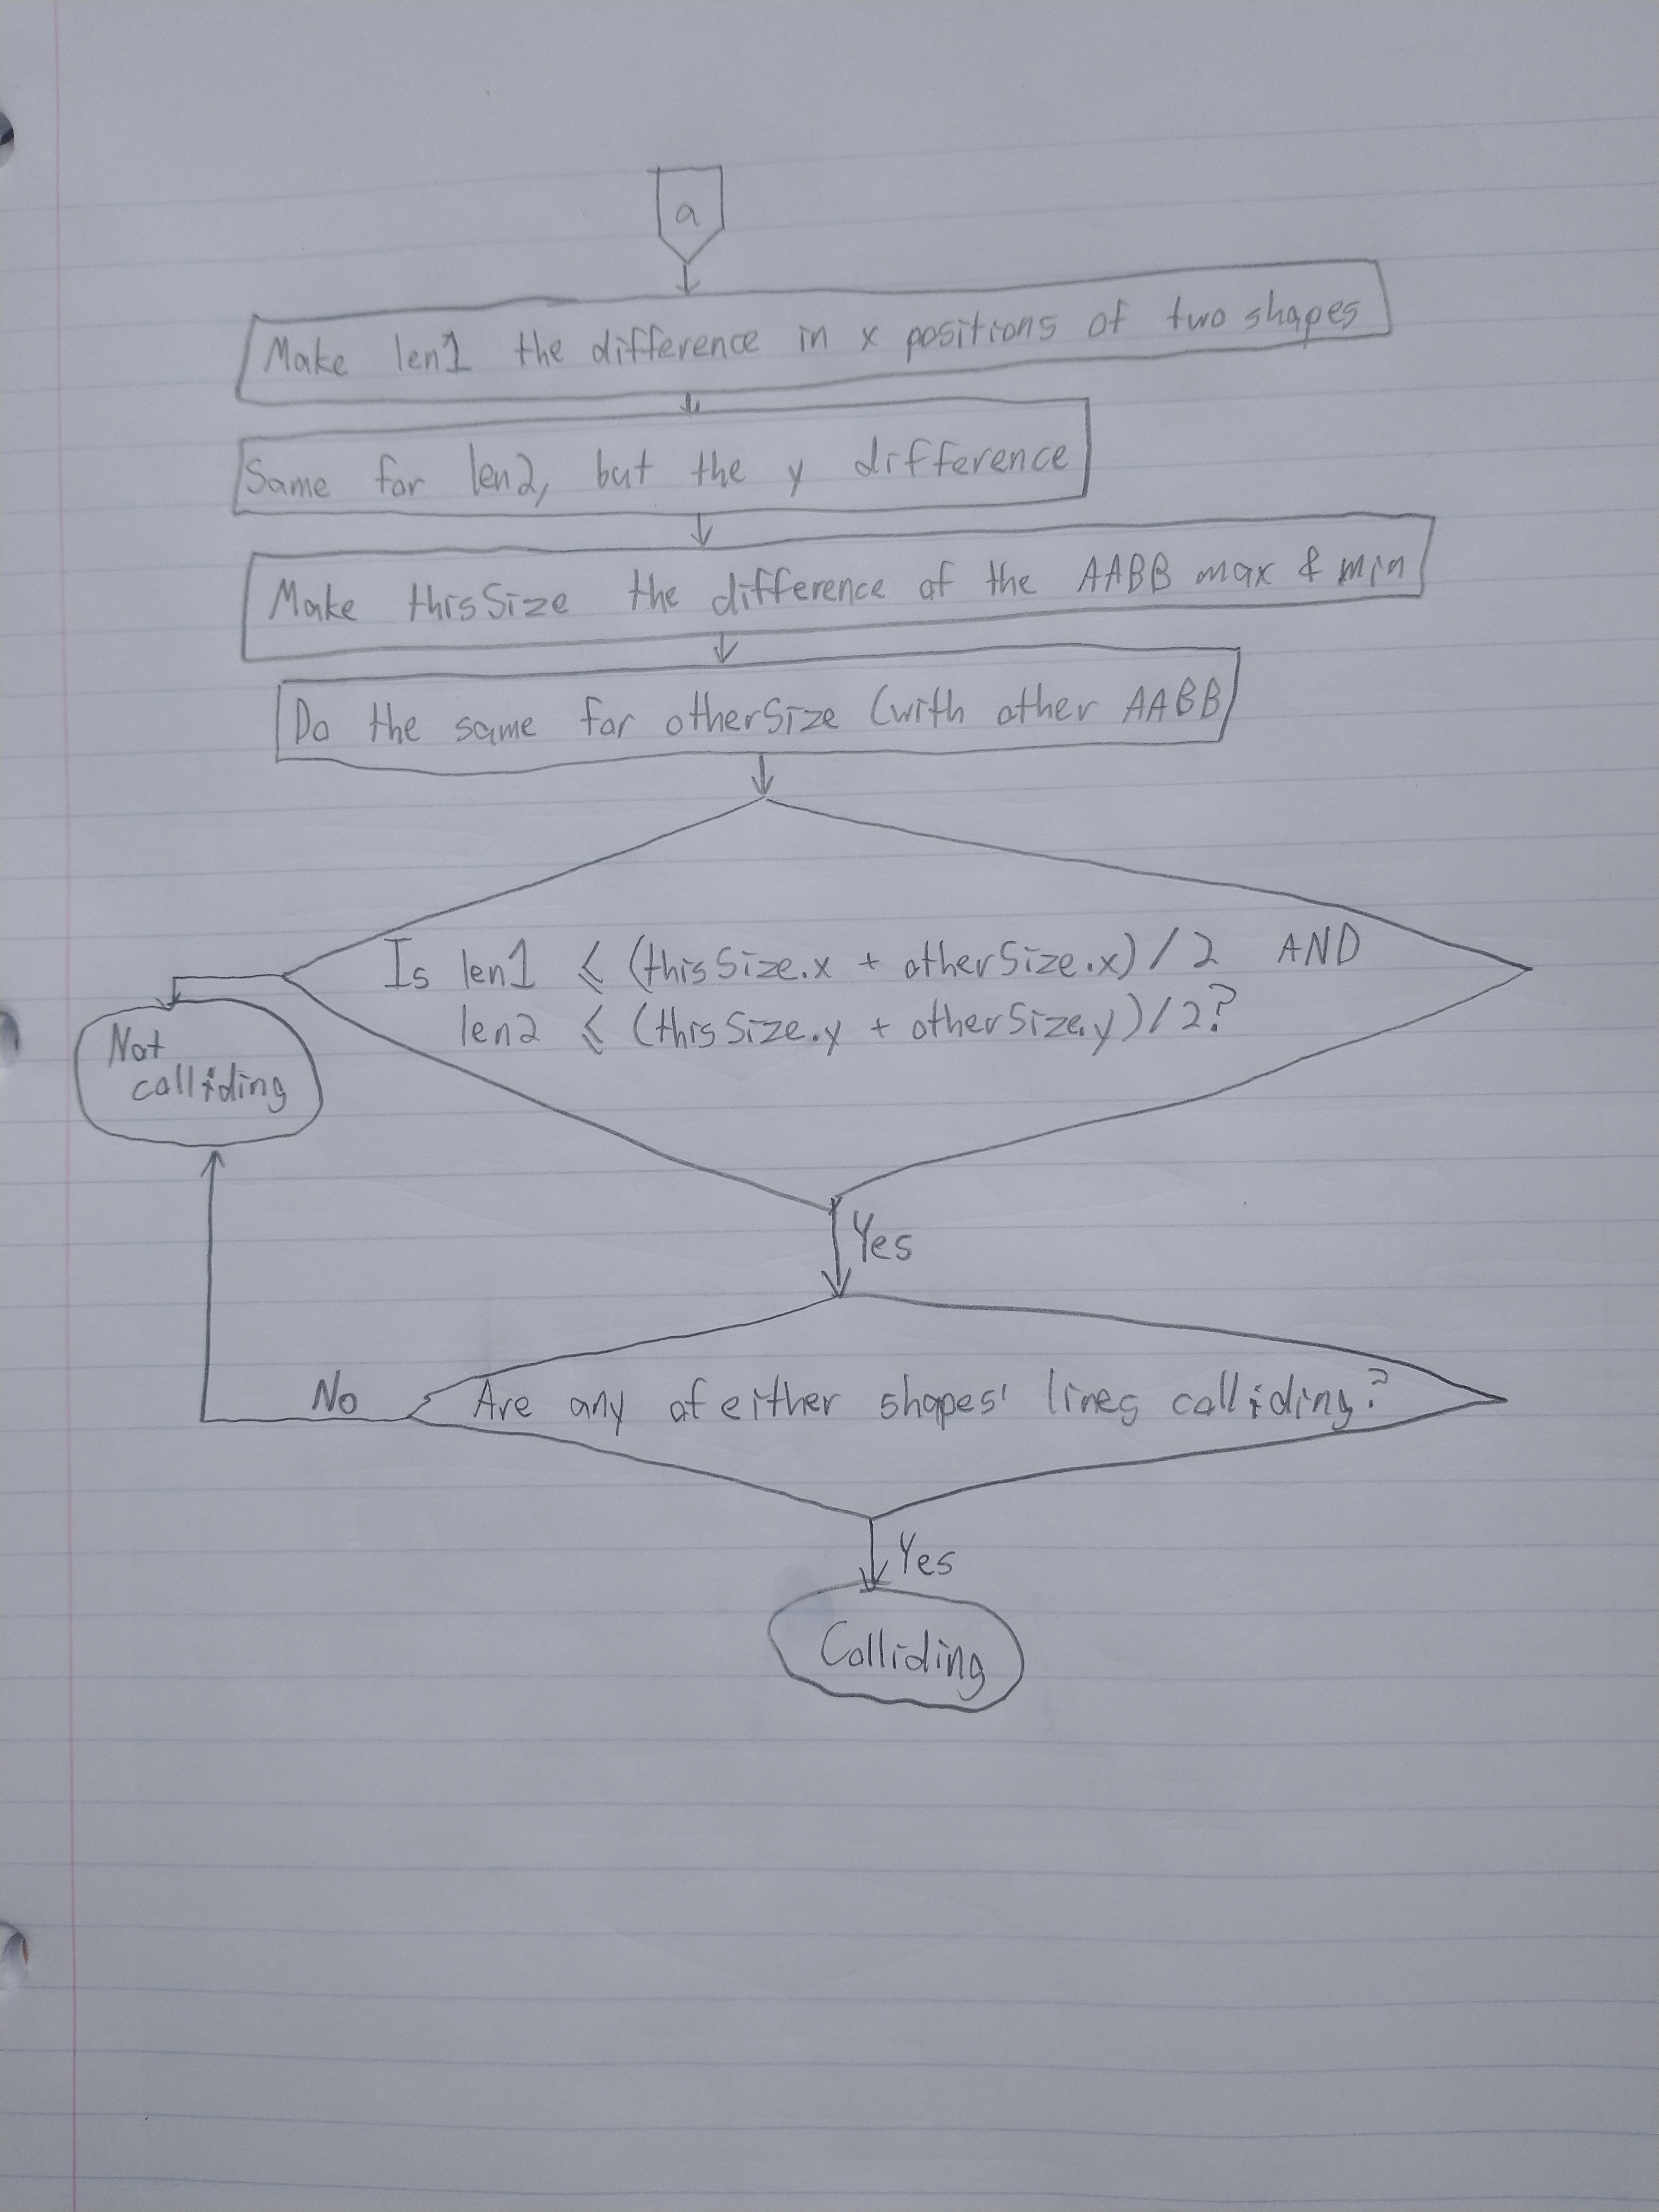 a
Make len1 the difference in x positions of two shapes
Same for len2, but the y difference
Make thisSize the difference of the AABB max & min
Do the same for otherSize (with other AABB)
Is len1 ⩽ (thisSize.x + otherSize.x) / 2 AND
len2 ⩽ (thisSize.y + otherSize.y) / 2?
Not
colliding
Yes
No
Are any of either shapes' lines colliding?
Yes
Colliding